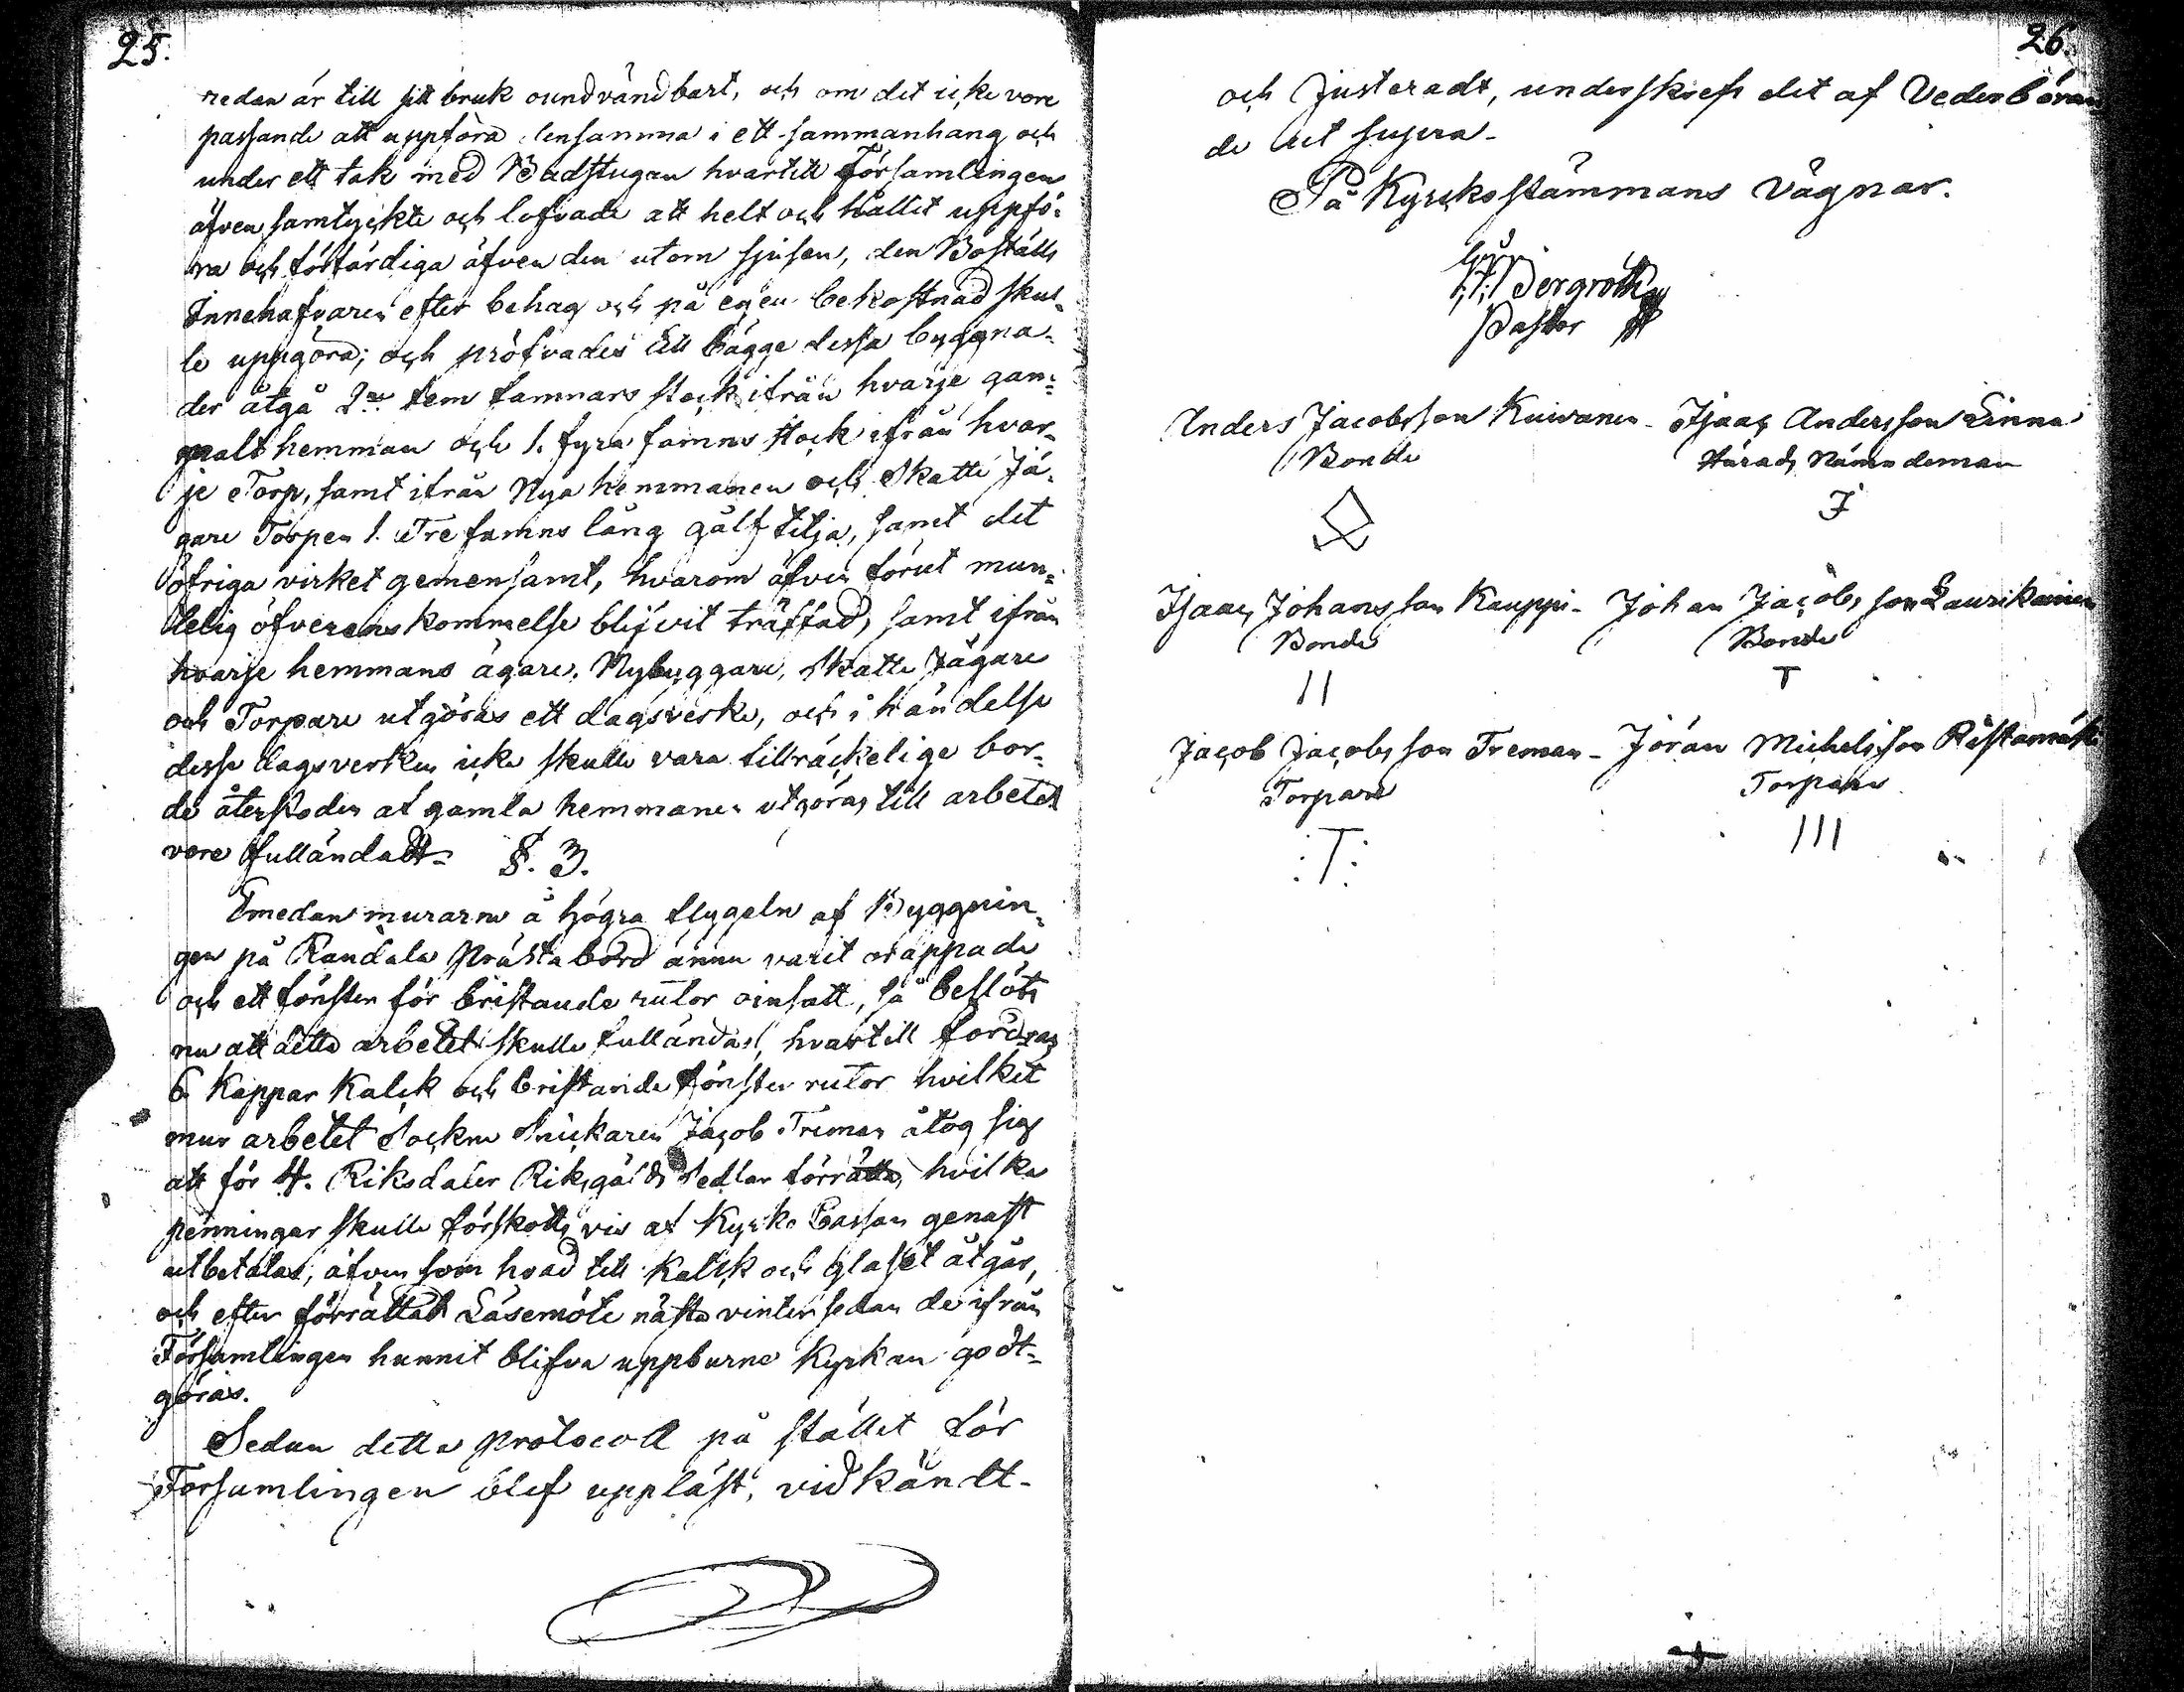 25.
redan är till sitt bruk oundvändbart, och om det icke vore
passande att uppföra densamma i ett sammanhang och
under ett tak med Badstugan hvartill Församlingen
äfven samtyckte och lofvade att helt och hållit uppfö-
ra och förfärdiga äfven den utom spisen, den Boställs
Innehafvaren efter behag och på egen bekostnad skul-
le uppgöra; och pröfvades till bägge dessa byggna-
der åtgå 2ne fem famnars stock ifrån hvarje gam-
malt hemman och 1. fyra famns stock ifrån hvar-
je Torp, samt ifrån Nya hemmanen och Skatte Jä-
gare Torpen 1. Tre famns lång gålf tilja, samt det
öfriga virket gemensamt, hvarom äfven förut mun-
telig öfverenskommelse blifvit träffad, samt ifrån
hvarje hemmans ägare, Nybyggare, Skatte Jägare
och Torpare utgöras ett dagsverke, och i händelse
desse dagsverken icke skulle vara tilräckelige bor-
de återstoden af gamla hemmanen utgöras till arbetet
vore fulländadt. §. 3.
Emedan murarne å högra flygeln af Byggnin-
gen på Randala Prästabord ännu varit orappade
och ett fönster för bristande rutor oinsatt, så beslöts
nu att detta arbetet skulle fulländas, hvartill fordras
6 Kappar Kalck och bristande fönster rutor hvilket
mur arbetet Sockne Snickaren Jacob Treman åtog sig
att för 4. Riksdaler Riksgälds Sedlar förrätta, hvilka
penningar skulle förskotts vis af Kyrko Cassan genast
utbetalas, äfven som hvad till Kalck och glaset åtgår,
och efter förrättat Läsemöte nästa vinter sedan de ifrån
Församlingen hunnit blifva uppburne Kyrkan godt-
göras.
Sedan detta Protocoll på stället för
Församlingen blef uppläst, vidkändt
26.
och Justeradt, underskrefs det af Vederböran
de ut supra.
På Kyrckostämmans vägnar.
Bergroth
Pastor
Anders Jacobsson Kuivanen - Isaac Andersson Linna
Bonde Härads Nämndeman
I
Isaac Johansson Kauppi - Johan Jacobsson Laurikainen
Bonde Bonde
II T
Jacob Jacobsson Treman - Jöran Michelsson
Torpare Torpare
:T: III